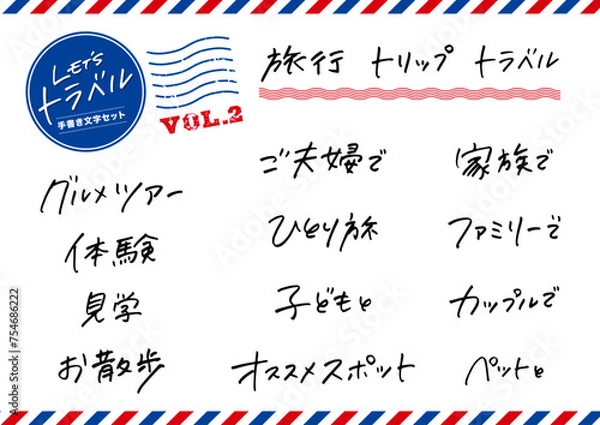 LET'S
トラベル
手書き文字セット
VOL.2
旅行 トリップ トラベル
グルメツアー
体験
見学
お散歩
ご夫婦で
ひとり旅
子どもと
オススメスポット
家族で
ファミリーで
カップルで
ペットと
Adobe Stock | #754686222